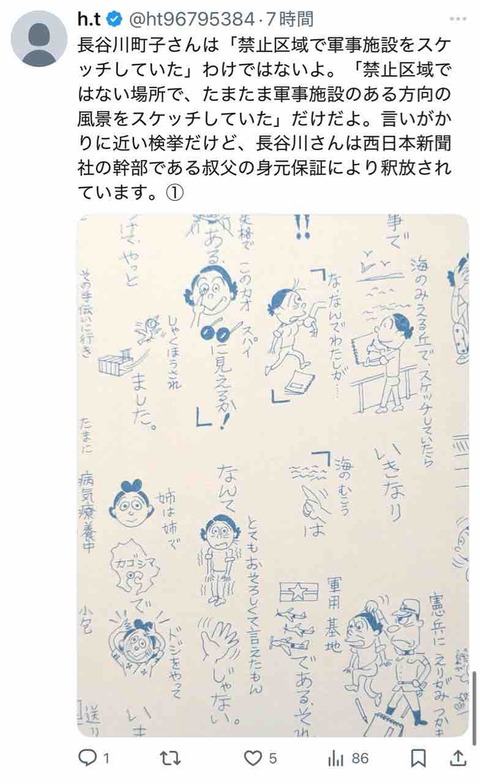 h.t
@ht96795384·7時間
長谷川町子さんは「禁止区域で軍事施設をスケ
ッチしていた」わけではないよ。「禁止区域で
はない場所で、たまたま軍事施設のある方向の
風景をスケッチしていた」だけだよ。言いがか
りに近い検挙だけど、長谷川さんは西日本新聞
社の幹部である叔父の身元保証により釈放され
ています。①
事で
海のみえる丘で、スケッチしていたら
いきなり
憲兵に えりがみ つかま
「な、なんでわたしが…」
「海のむこうは
軍用 基地 である。それ
!!
失格で
このカオ スパイ
に見えるか!」
とてもおそろしくて言えたもん
なんて
じゃない。
ある、
しゃくほうされ
ました。
姉は姉で
カゴシマで
ドジをやって
やっと
いま
その手伝いに行き
たまに
病気療養中
送り
1
5
86